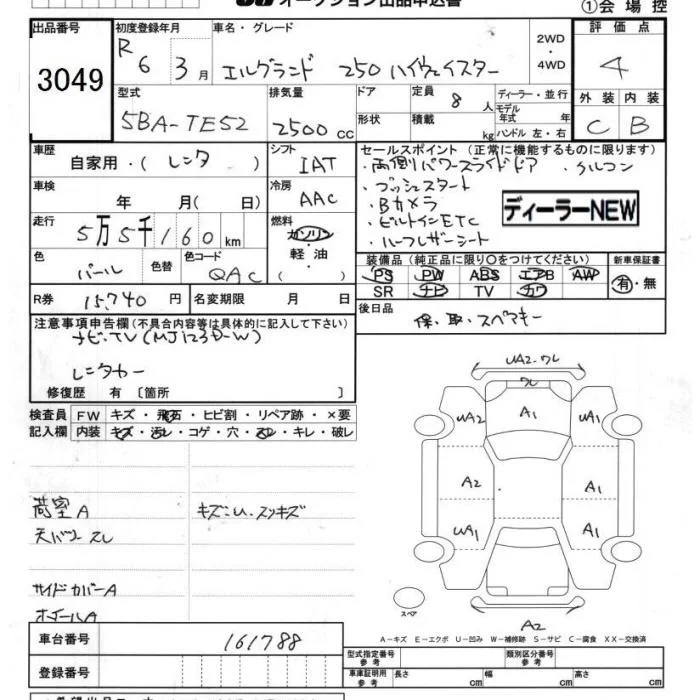 オークション出品申込書
①会場控
出品番号
3049
初度登録年月
R 6 3月
車名・グレード
エルグランド 250 ハイウェイスター
2WD
・
4WD
評価点
4
型式
5BA-TE52
排気量
2500cc
ドア
形状
定員
8人
積載
kg
ディーラー・並行
モデル年式 年
ハンドル 左・右
外装
C
内装
B
車歴
自家用・(レンタ)
シフト
IAT
セールスポイント(正常に機能するものに限ります)
・両側パワースライドドア ・クルコン
・プッシュスタート
・Bカメラ
・ビルトインETC
・ハーフレザーシート
ディーラーNEW
車検
年 月( 日)
冷房
AAC
走行
5万5千160km
燃料
ガソリン
・
軽油
( )
色
パール
色替
色コード
QAC
装備品(純正品に限り○をつけてください)
PS PW ABS エアB AW
SR ナビ TV カワ
新車保証書
有・無
R券
15,740円
名変期限
月 日
後日品
保・取・スペアキー
注意事項申告欄(不具合内容等は具体的に記入して下さい)
ナビ・TV(MJ123D-W)
レンタカー
修復歴 有 〔箇所 〕
検査員
記入欄
FW キズ・飛石・ヒビ割・リペア跡・×要
内装 キズ・汚レ・コゲ・穴・スレ・キレ・破レ
荷室A
キズ・U・スリキズ
天バリ スレ
サイドカバーA
ホイールA
UA2・ワレ
ワレ
UA2
A1
UA1
A2
A1
UA1
A1
A2
スペア
A-キズ E-エクボ U-凹み W-補修跡 S-サビ C-腐食 XX-交換済
車台番号
161788
登録番号
型式指定番号
参考
類別区分番号
参考
車庫証明用
参考
長さ cm
幅 cm
高さ cm